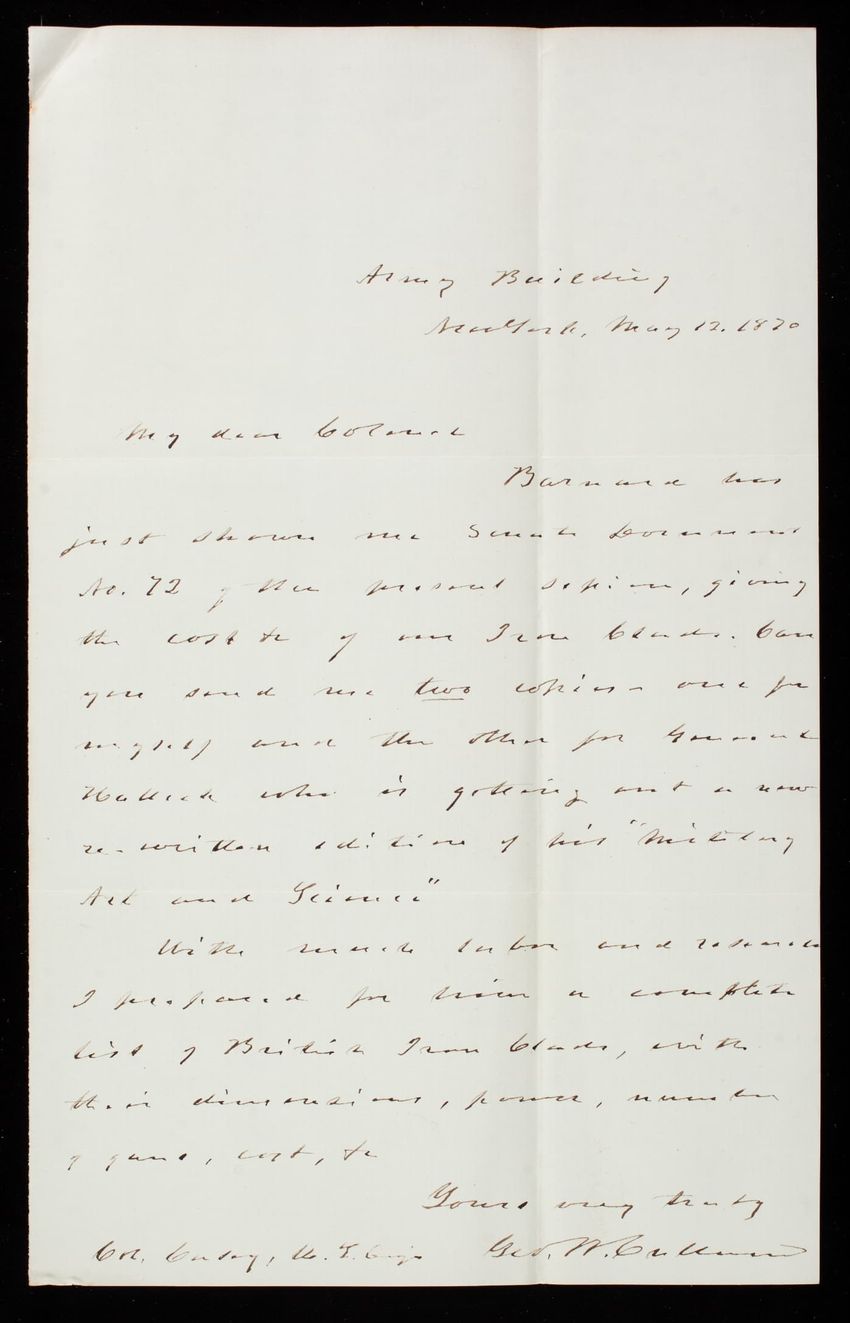 Army Building
New York, May 12. 1870
My dear Colonel
Barnard has
just shown me Senate Document
No. 72 of the present session, giving
the cost &c of our Iron Clads. Can
you send me two copies - one for
myself and the other for General
Halleck who is getting out a new
re-written edition of his "Military
Art and Science"
With much labor and research
I prepared for him a complete
list of British Iron Clads, with
their dimensions, power, number
of guns, cost, &c
Yours very truly
Geo. W. Cullum
Col. Casey, U. S. Engs